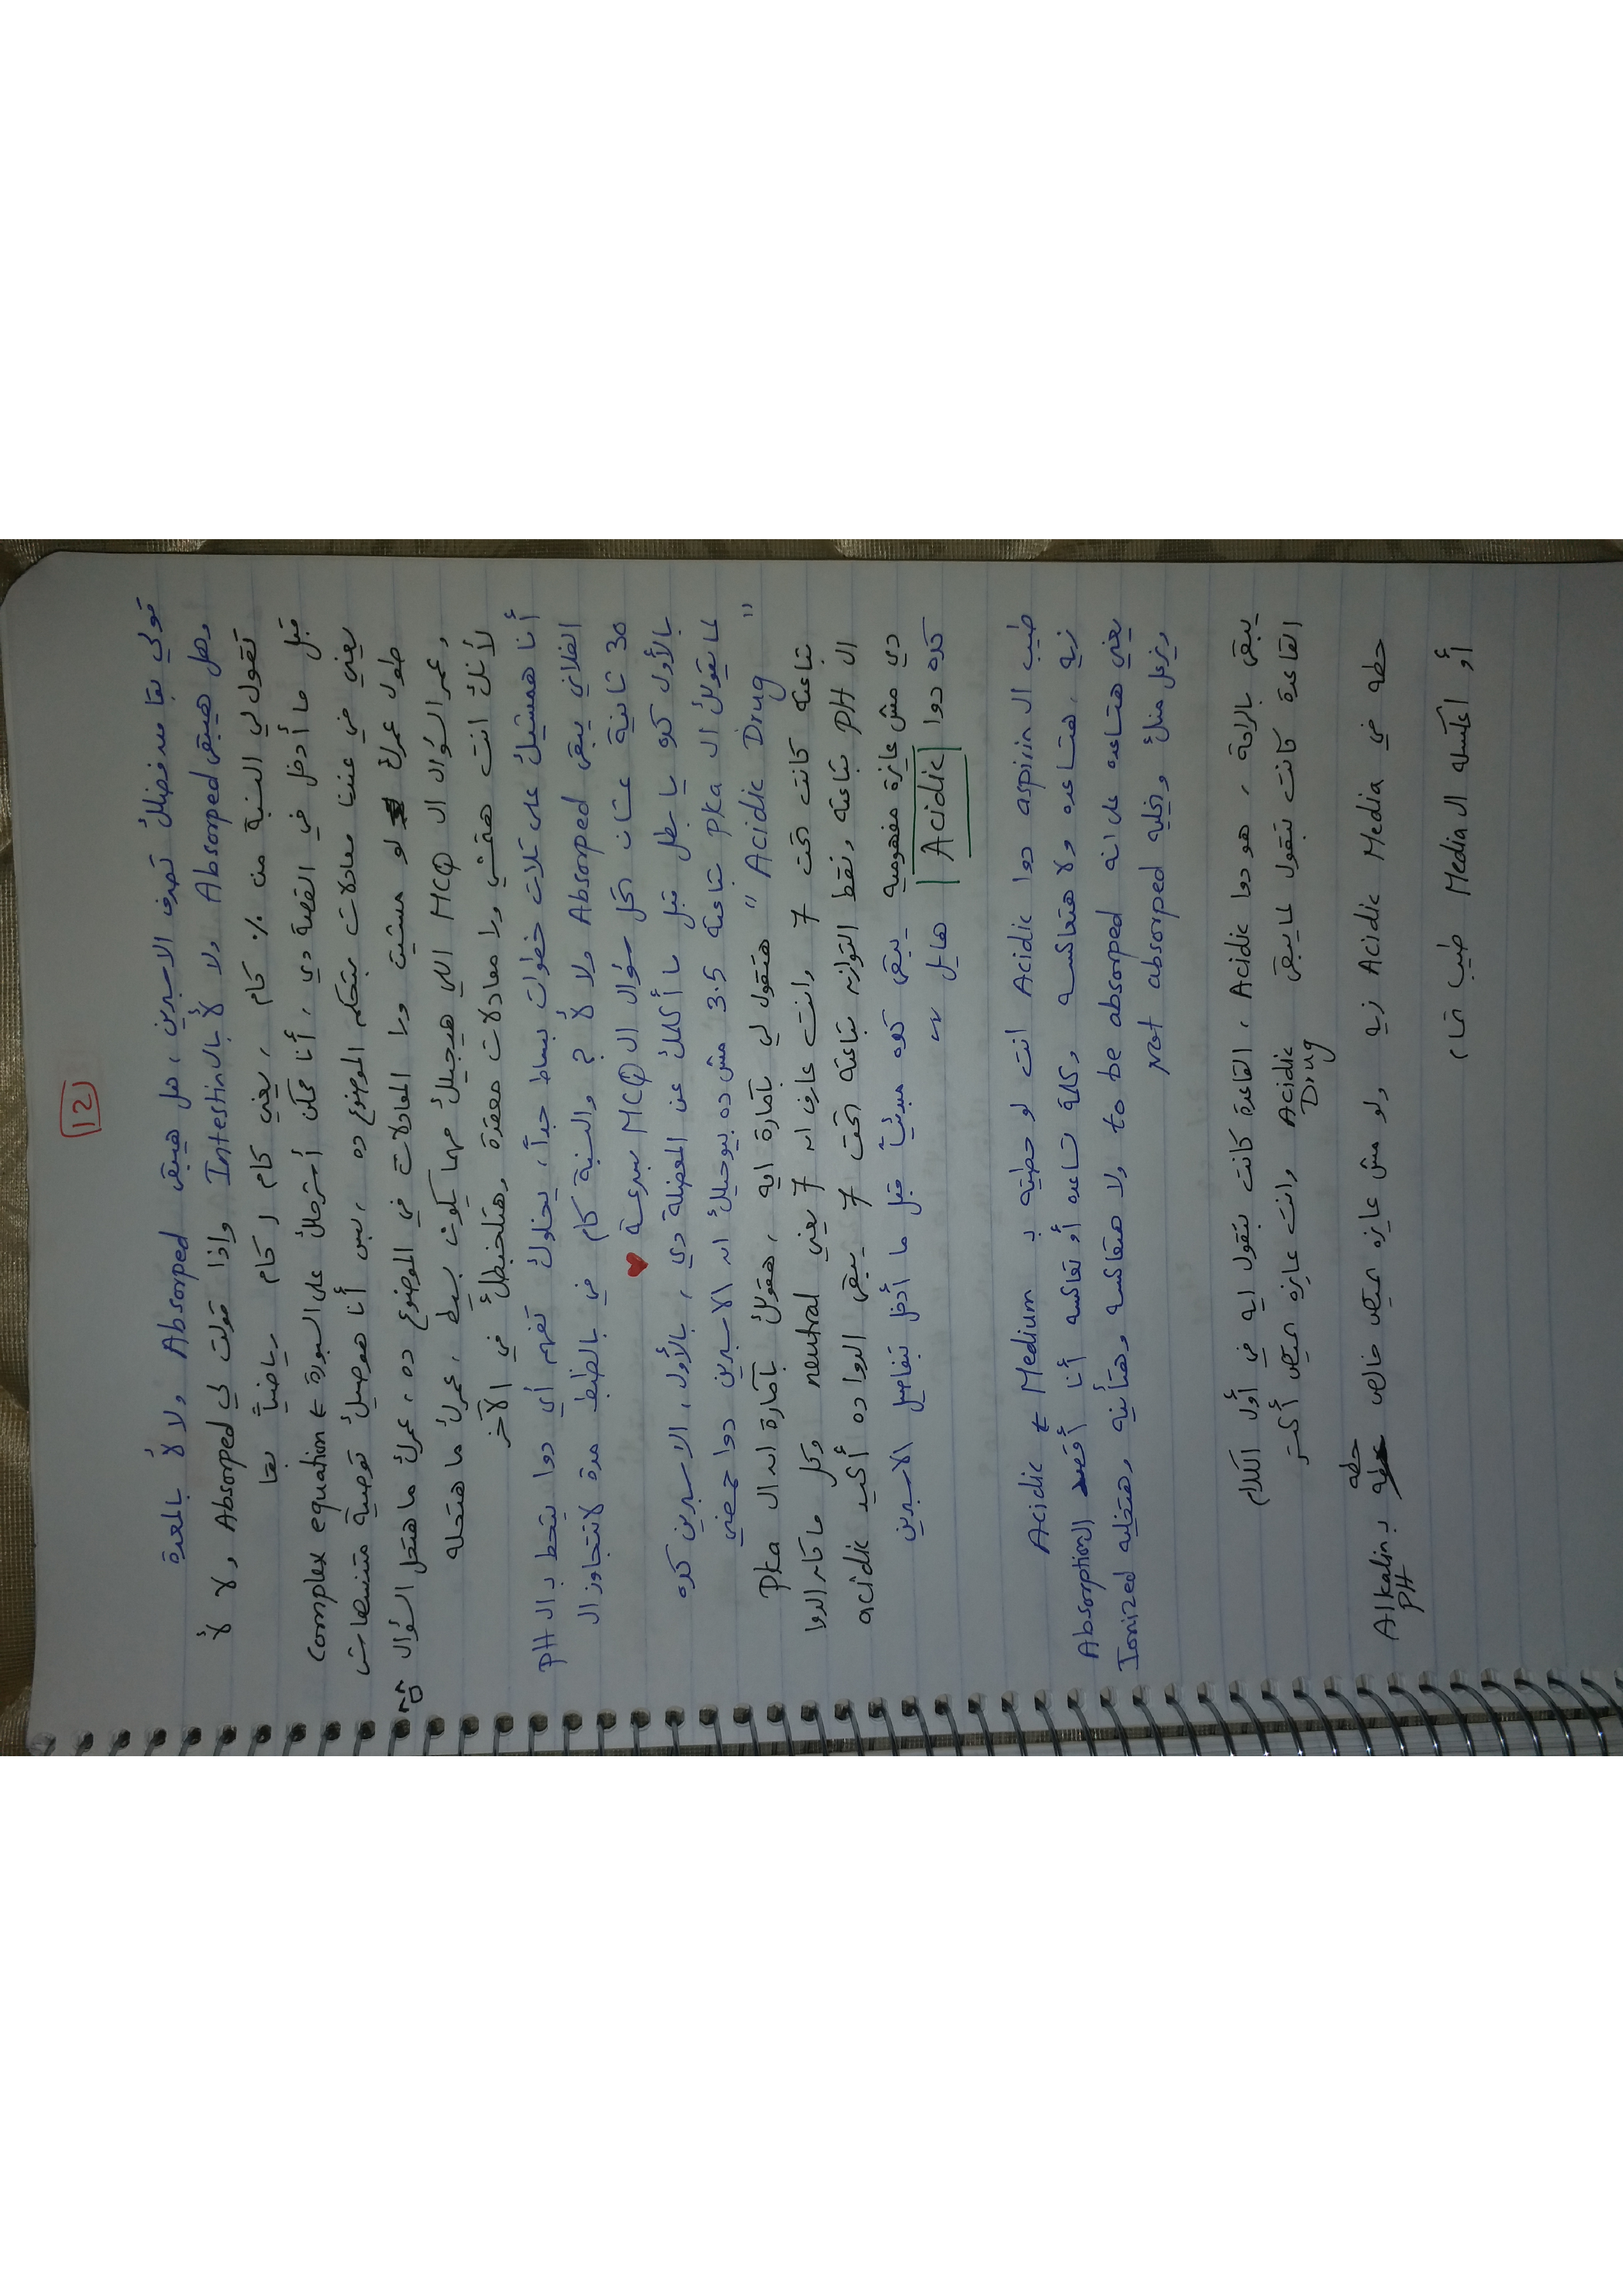 12
قولي بقا من فضلك تصرف الاسبرين، هل هيبقى Absorped ولا لأ بالمعدة
وهل هيبقى Absorped ولا لأ بال Intestin واذا قولت لي Absorped ولا لأ
تقول لي النسبة من % كام، يعني كام لكام رياضياً بقا
قبل ما أدخل في القصة دي، أنا ممكن أسترجلك على السبورة ← complex equation
يعني في عندنا معادلات بتحكم الموضوع ده، بس أنا هوصيك توصية متنساهاش
طول عمرك لو مشيت ورا المعادلات في الموضوع ده، عمرك ما هتحل السؤال
وعمر السؤال ال MCQ اللي هيجيلك مهما يكون بسيط، عمرك ما هتحله
لأنك انت همشي ورا معادلات معقدة وهتلخبطك في الآخر
أنا همشيك على تلات خطوات بساط جداً، يخلوك تفهم أي دوا يتحط بـ ال PH
الفلاني يبقى Absorped ولا لأ؟ والنسبة كام في بالظبط مدة لاتتجاوز ال
30 ثانية عشان تحل سؤال ال MCQ بسرعة ♥
بالأول كده يا بطل قبل ما أكلمك عن المعضلة دي، بالأول، الاسبرين كده
لما يقولك ال Pka بتاعته 3.5 مش ده بيوحيلك ان الاسبرين دوا حمضي
" Acidic Drug " هتقول لي بأمارة ايه، هقولك بأمارة ان ال Pka
بتاعته كانت تحت 7 وانت عارف ان 7 يعني neutral وكل ما كان الدوا
ال PH بتاعته ونقط التوازن بتاعته تحت 7 يبقى الدوا ده أكيد acidic
دي مش عايزة مفهومية يبقى كده مبدئياً قبل ما أدخل بتفاصيل الاسبرين
كده دوا Acidic هايل
طيب ال aspirin دوا Acidic انت لو حطيته بـ Acidic Medium
زيه، هتساعده ولا هتعاكسه، وكلمة تساعده أو تعاكسه أنا أقصد ال Absorption
يعني هتساعده على انه to be absorped ولا هتعاكسه وهتأينه وهتخليه Ionized
ويزعل منك وتخليه Not absorped
يبقى بالراحة، هو دوا Acidic، القاعدة كانت بتقول ايه في أول الكلام
القاعدة كانت بتقول لما يبقى Acidic Drug وانت عايزه يمتص أكتر
حطه في Acidic Media زيه ولو مش عايزه يمتص خالص حطه بـ Alkalin PH
أو اعكسله ال Media طيب تمام